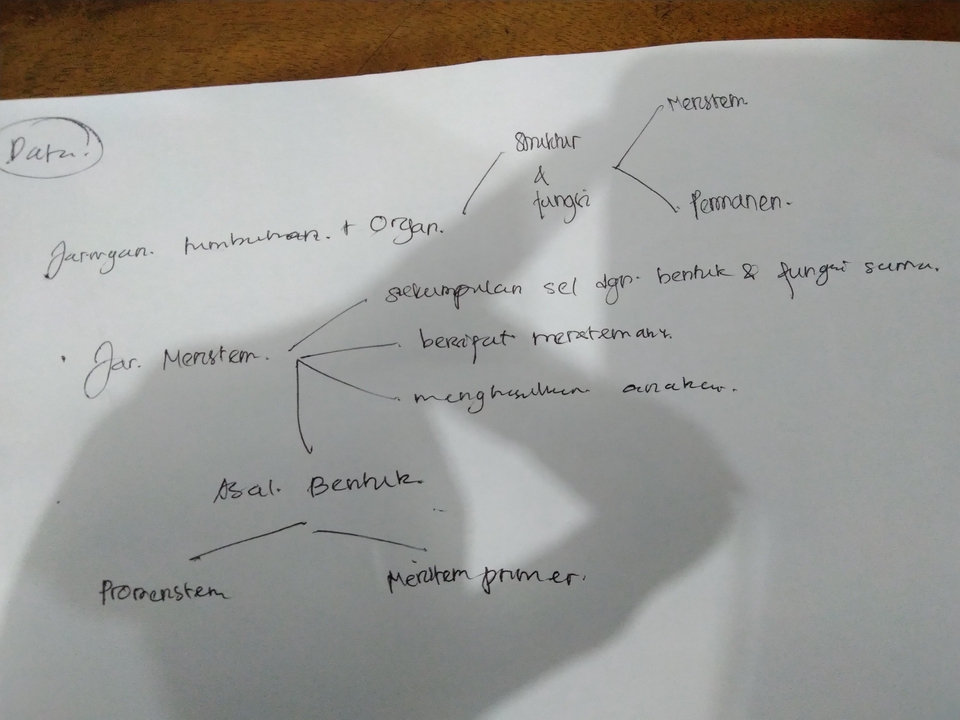 Data!
Meristem
Struktur
&
fungsi
Permanen.
Jaringan. tumbuhan. + Organ.
sekumpulan sel dgn. bentuk & fungsi sama.
Jar. Meristem.
bersifat
menghasilkan anakan.
Asal. Bentuk.
Promeristem
Meristem primer.